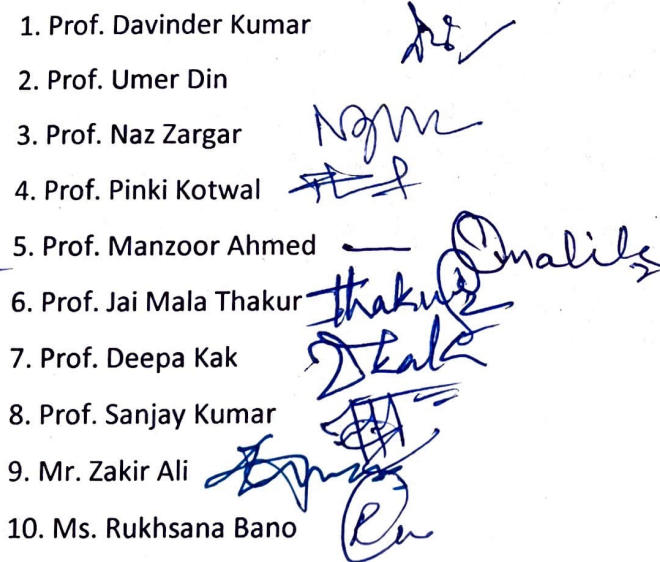 1. Prof. Davinder Kumar
2. Prof. Umer Din
3. Prof. Naz Zargar
4. Prof. Pinki Kotwal
5. Prof. Manzoor Ahmed — Qmalik
6. Prof. Jai Mala Thakur Thakur
7. Prof. Deepa Kak Dkak
8. Prof. Sanjay Kumar
9. Mr. Zakir Ali
10. Ms. Rukhsana Bano